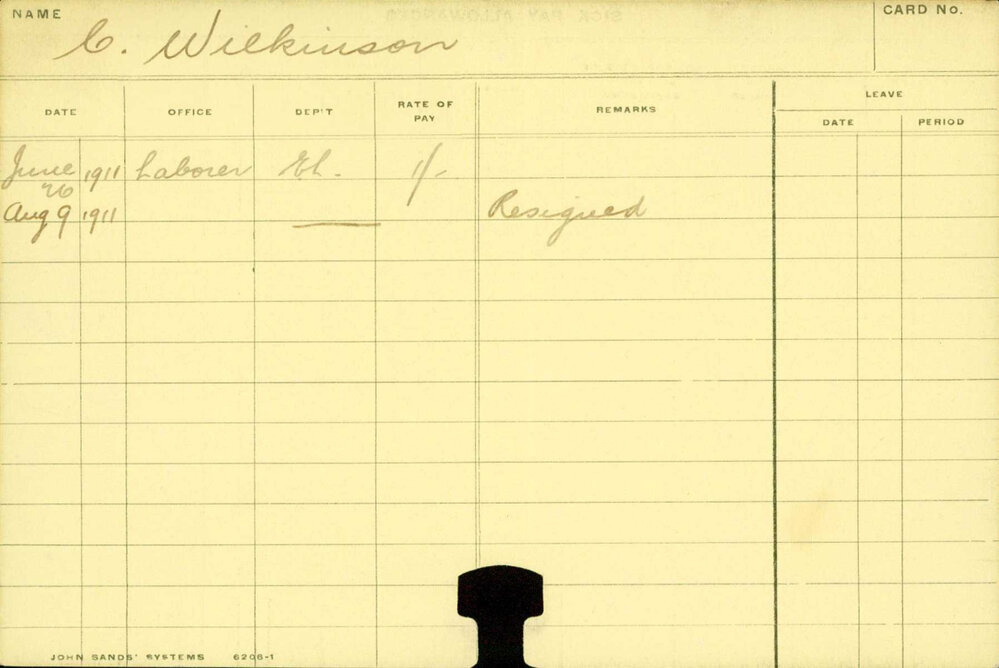 NAME
C. Wilkinson
CARD No.
DATE OFFICE DEP'T RATE OF PAY REMARKS LEAVE
DATE PERIOD
June 26 1911 Laborer El. 1/-
Aug 9 1911 Resigned
JOHN SANDS' SYSTEMS 6206-1